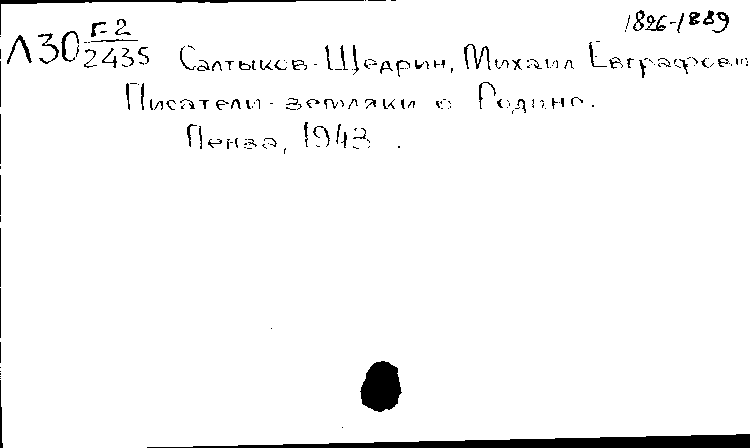 1826-1889
Л30 Г-2/2435 Салтыков-Щедрин, Михаил Евграфови
Писатели-земляки о Родине.
Пенза, 1943.